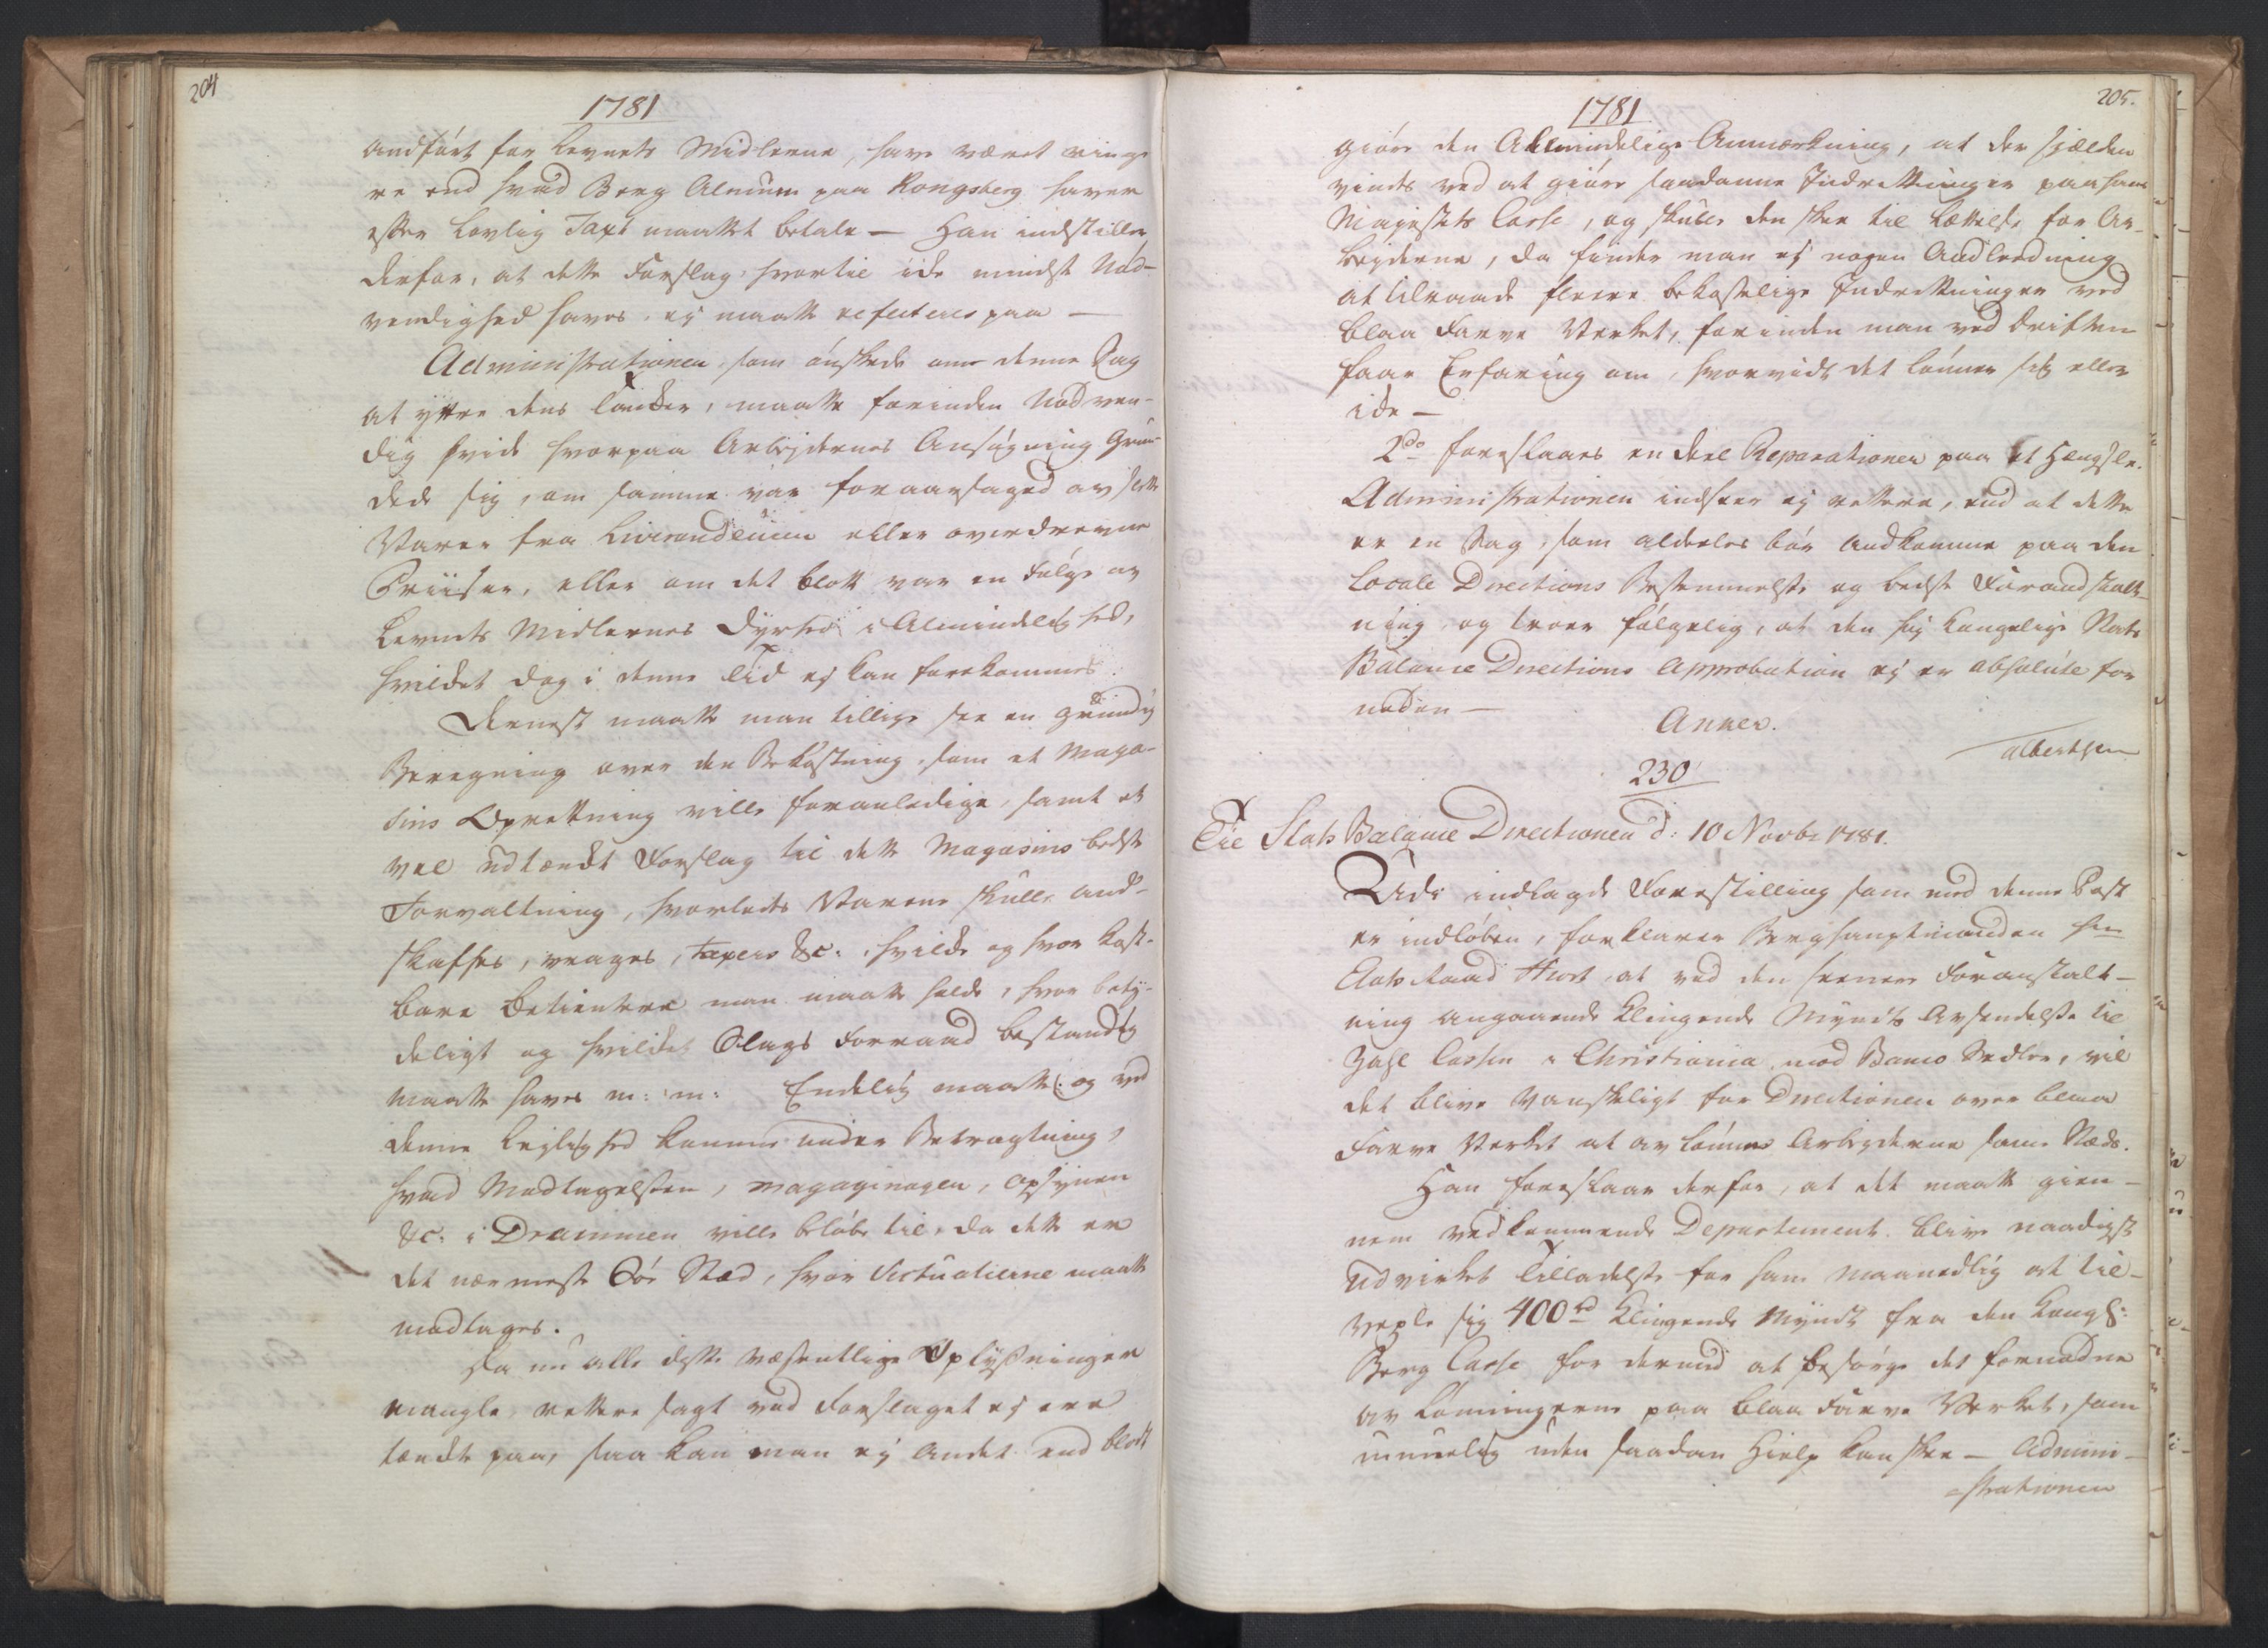 204
1781
andført for Levnets Midlerne, have været ringe
re end hvad Berg Almuen paa Kongsberg haver
efter lovlig Taxt maattet betale — Han indstiller
derfor, at dette Forslag, hvortil icke mindste Nød-
vendighed haves, ej maatte reflecteres paa —
Administrationen, som ønskede om denne Sag
at yttre dens Tancker, maatte forinden Nødven-
dig vide hvorpaa Arbejdernes Ansøgning Grun-
dede sig, om samme var foraarsaged av slette
Varer fra Liverandeurerne eller overdrevne
Priiser, eller om det blott var en Følge av
Levnets Midlernes Dyrhed i Almindelighed,
hvilcket dog i denne Tid ej kan forekommes.
Dernest maatte man tillige see en grundig
Beregning over den Bekostning, som et Maga-
sins Oprettning ville foranledige, samt et
vel udtænckt Forslag til dette Magasins bedste
Forvaltning, hvorledes Varene skulle and-
skaffes, vrages, taxeres &c: hvilcke og hvor kost-
bare Betientere man maatte holde, hvor bety-
deligt og hvilcket Slags Forraad bestandig
maatte haves m: m: Endelig maatte og ved
denne Lejlighed komme under Betragtning,
hvad Modtagelsen, magazinagen, opsynen
&c: i Drammen ville beløbe til, da dette er
det nærmeste Søe Stæd, hvor Victualierne maatte
modtages.
Da nu alle disse væsentlige Oplysninger
mangle, rettere sagt ved Forslaget ej ere
tænckt paa, saa kan man ej andet end blott
205.
1781
giøre den Allmindelige Anmærckning, at der sielden
vindes ved at giøre saadanne Indrettninger paa hans
Majestets Casse, og skulle den skee til Lættelse for Ar-
bejderne, da finder man ej nogen Andledning
at tilraade fleere bekostelige Indrettninger ved
Blaa Farve Vercket, forinden man ved Driften
faar Erfaring om, hvorvidt det lønner sig eller
icke —
2do foreslaaes en deel Reparationer paa et Hængsle.
Administrationen indseer ej rettere, end at dette
er en Sag, som aldeeles bør andkomme paa den
Locale Directions Bestemmelse og bedste Forandstalt-
ning, og troer følgelig, at den høj Kongelige Stats
Balance Directions Approbation ej er absolute for
nøden —
Anker.
Albertsen
230
Til Stats Balance Directionen d: 10 Novbr 1781.
Udi indlagde Forestilling som med denne Post
er indløben, forklarer Berghauptmanden Hr
Etats Raad Hiort, at ved den seenere Foranstalt-
ning angaaende klingende Mynts Avsendelse til
Zahl Cassen i Christiania mod Banco Sedler, vil
det blive vanskeligt for Directionen over Blaa
Farve Vercket at avlønne Arbejderne sammesteds.
Han foreslaar derfor, at det maatte gien-
nem vedkommende Departement blive naadigst
udvircket Tilladelse for ham maanedlig at til-
vexle sig 400 rd klingende Mynt fra den Kongl:
Berg Casse for dermed at besørge det fornødne
av Lønningerne paa Blaa Farve Vercket, som
umuelig uden saadan Hielp kan skee — Admini-
=strationen